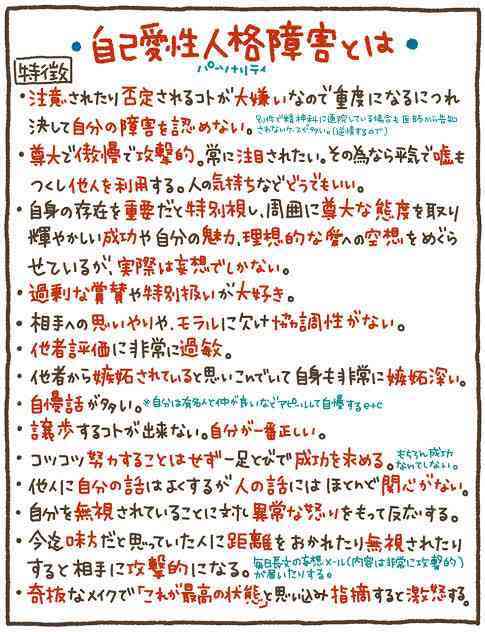 自己愛性人格障害とは
パーソナリティ
特徴
・注意されたり否定されるコトが大嫌いなので重度になるにつれ
決して自分の障害を認めない。別件で精神科に通院している場合も医師から告知
されないケースが多い。(逆情するので)
・尊大で傲慢で攻撃的。常に注目されたい。その為なら平気で嘘も
つくし他人を利用する。人の気持ちなどどうでもいい。
・自身の存在を重要だと特別視し、周囲に尊大な態度を取り
輝やかしい成功や自分の魅力、理想的な愛への空想をめぐら
せているが、実際は妄想でしかない。
・過剰な賞賛や特別扱いが大好き。
・相手への思いやりや、モラルに欠け協調性がない。
・他者評価に非常に過敏。
・他者から嫉妬されていると思いこんでいて自身も非常に嫉妬深い。
・自慢話が多い。※自分は有名人と仲が良いなどアピールして自慢するetc
・譲歩するコトが出来ない。自分が一番正しい。
・コツコツ努力することはせず一足とびで成功を求める。もちろん成功
なんてしない。
・他人に自分の話はよくするが人の話にはほとんど関心がない。
・自分を無視されていることに対し異常な怒りをもって反応する。
・今迄味方だと思っていた人に距離をおかれたり無視されたり
すると相手に攻撃的になる。毎日長文の妄想メール(内容は非常に攻撃的)
が届いたりする。
・奇抜なメイクで「これが最高の状態」と思い込み指摘すると激怒する。